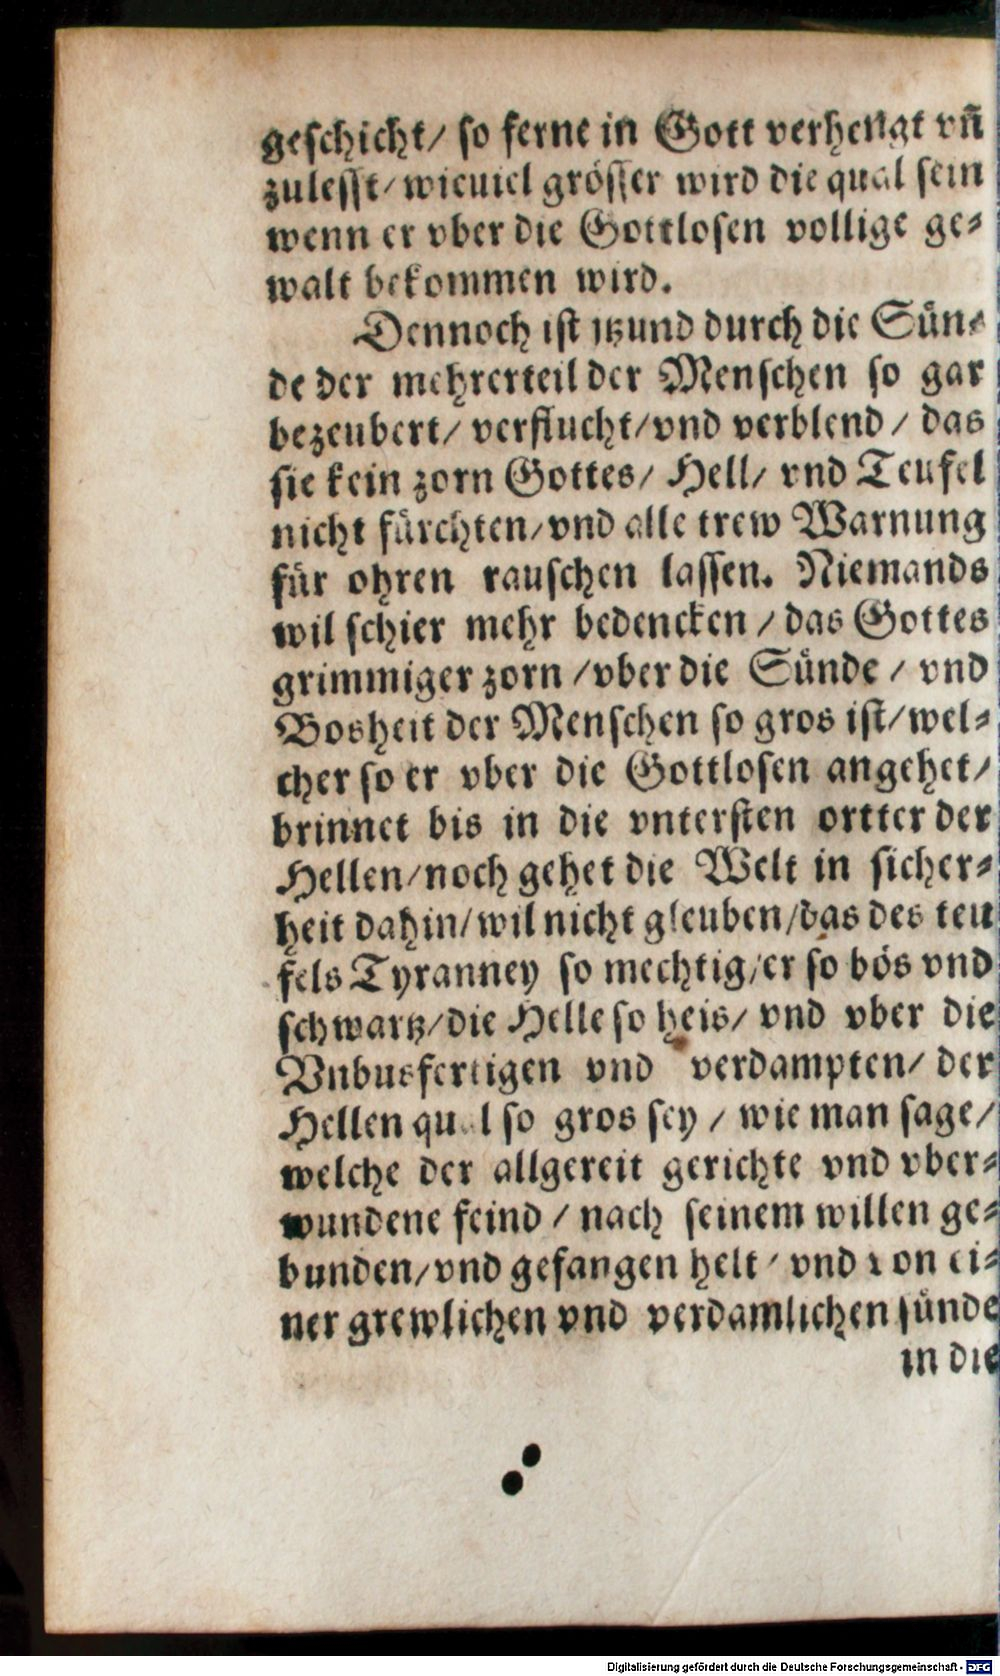 geschicht/ so ferne in Gott verhengt vn̄
zulesst/ wieuiel grösser wird die qual sein
wenn er vber die Gottlosen vollige ge⸗
walt bekommen wird.
Dennoch ist jtzund durch die Sün⸗
de der mehrerteil der Menschen so gar
bezeubert/ verflucht/vnd verblend / das
sie kein zorn Gottes/ Hell/ vnd Teufel
nicht fürchten/vnd alle trew Warnung
für ohren rauschen lassen. Niemands
wil schier mehr bedencken / das Gottes
grimmiger zorn /vber die Sünde / vnd
Bosheit der Menschen so gros ist/wel⸗
cher so er vber die Gottlosen angehet/
brinnet bis in die vntersten ortter der
Hellen/noch gehet die Welt in sicher⸗
heit dahin/wil nicht gleuben/das des teu
fels Tyranney so mechtig/er so bös vnd
schwartz/die Helle so heis/ vnd vber die
Vnbusfertigen vnd verdampten/ der
Hellen qual so gros sey / wie man sage/
welche der allgereit gerichte vnd vber⸗
wundene feind / nach seinem willen ge⸗
bunden/vnd gefangen helt / vnd von ei⸗
ner grewlichen vnd verdamlichen sünde
in die
Digitalisierung gefördert durch die Deutsche Forschungsgemeinschaft - DFG